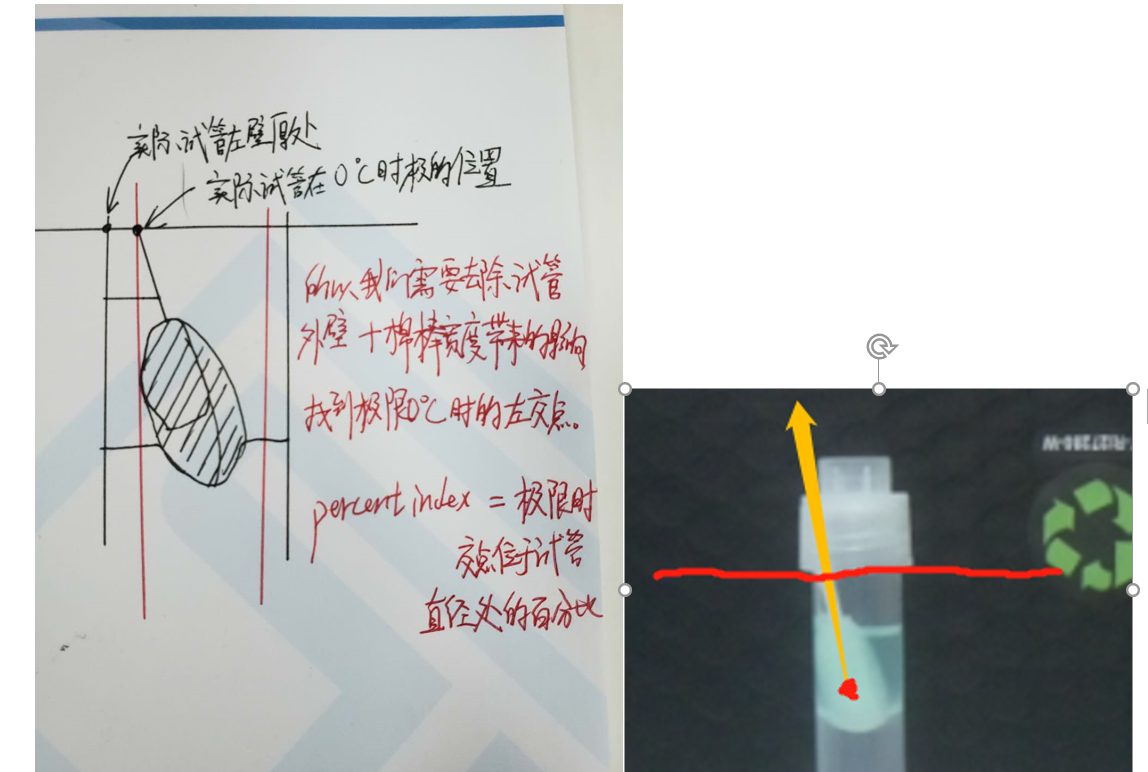 实际试管左壁厚处
实际试管在0℃时极的位置
所以我们需要去除试管
外壁+棉棒宽度带来的影响
找到极限0℃时的左交点。
percent index = 极限时
交点位于试管
直径处的百分比